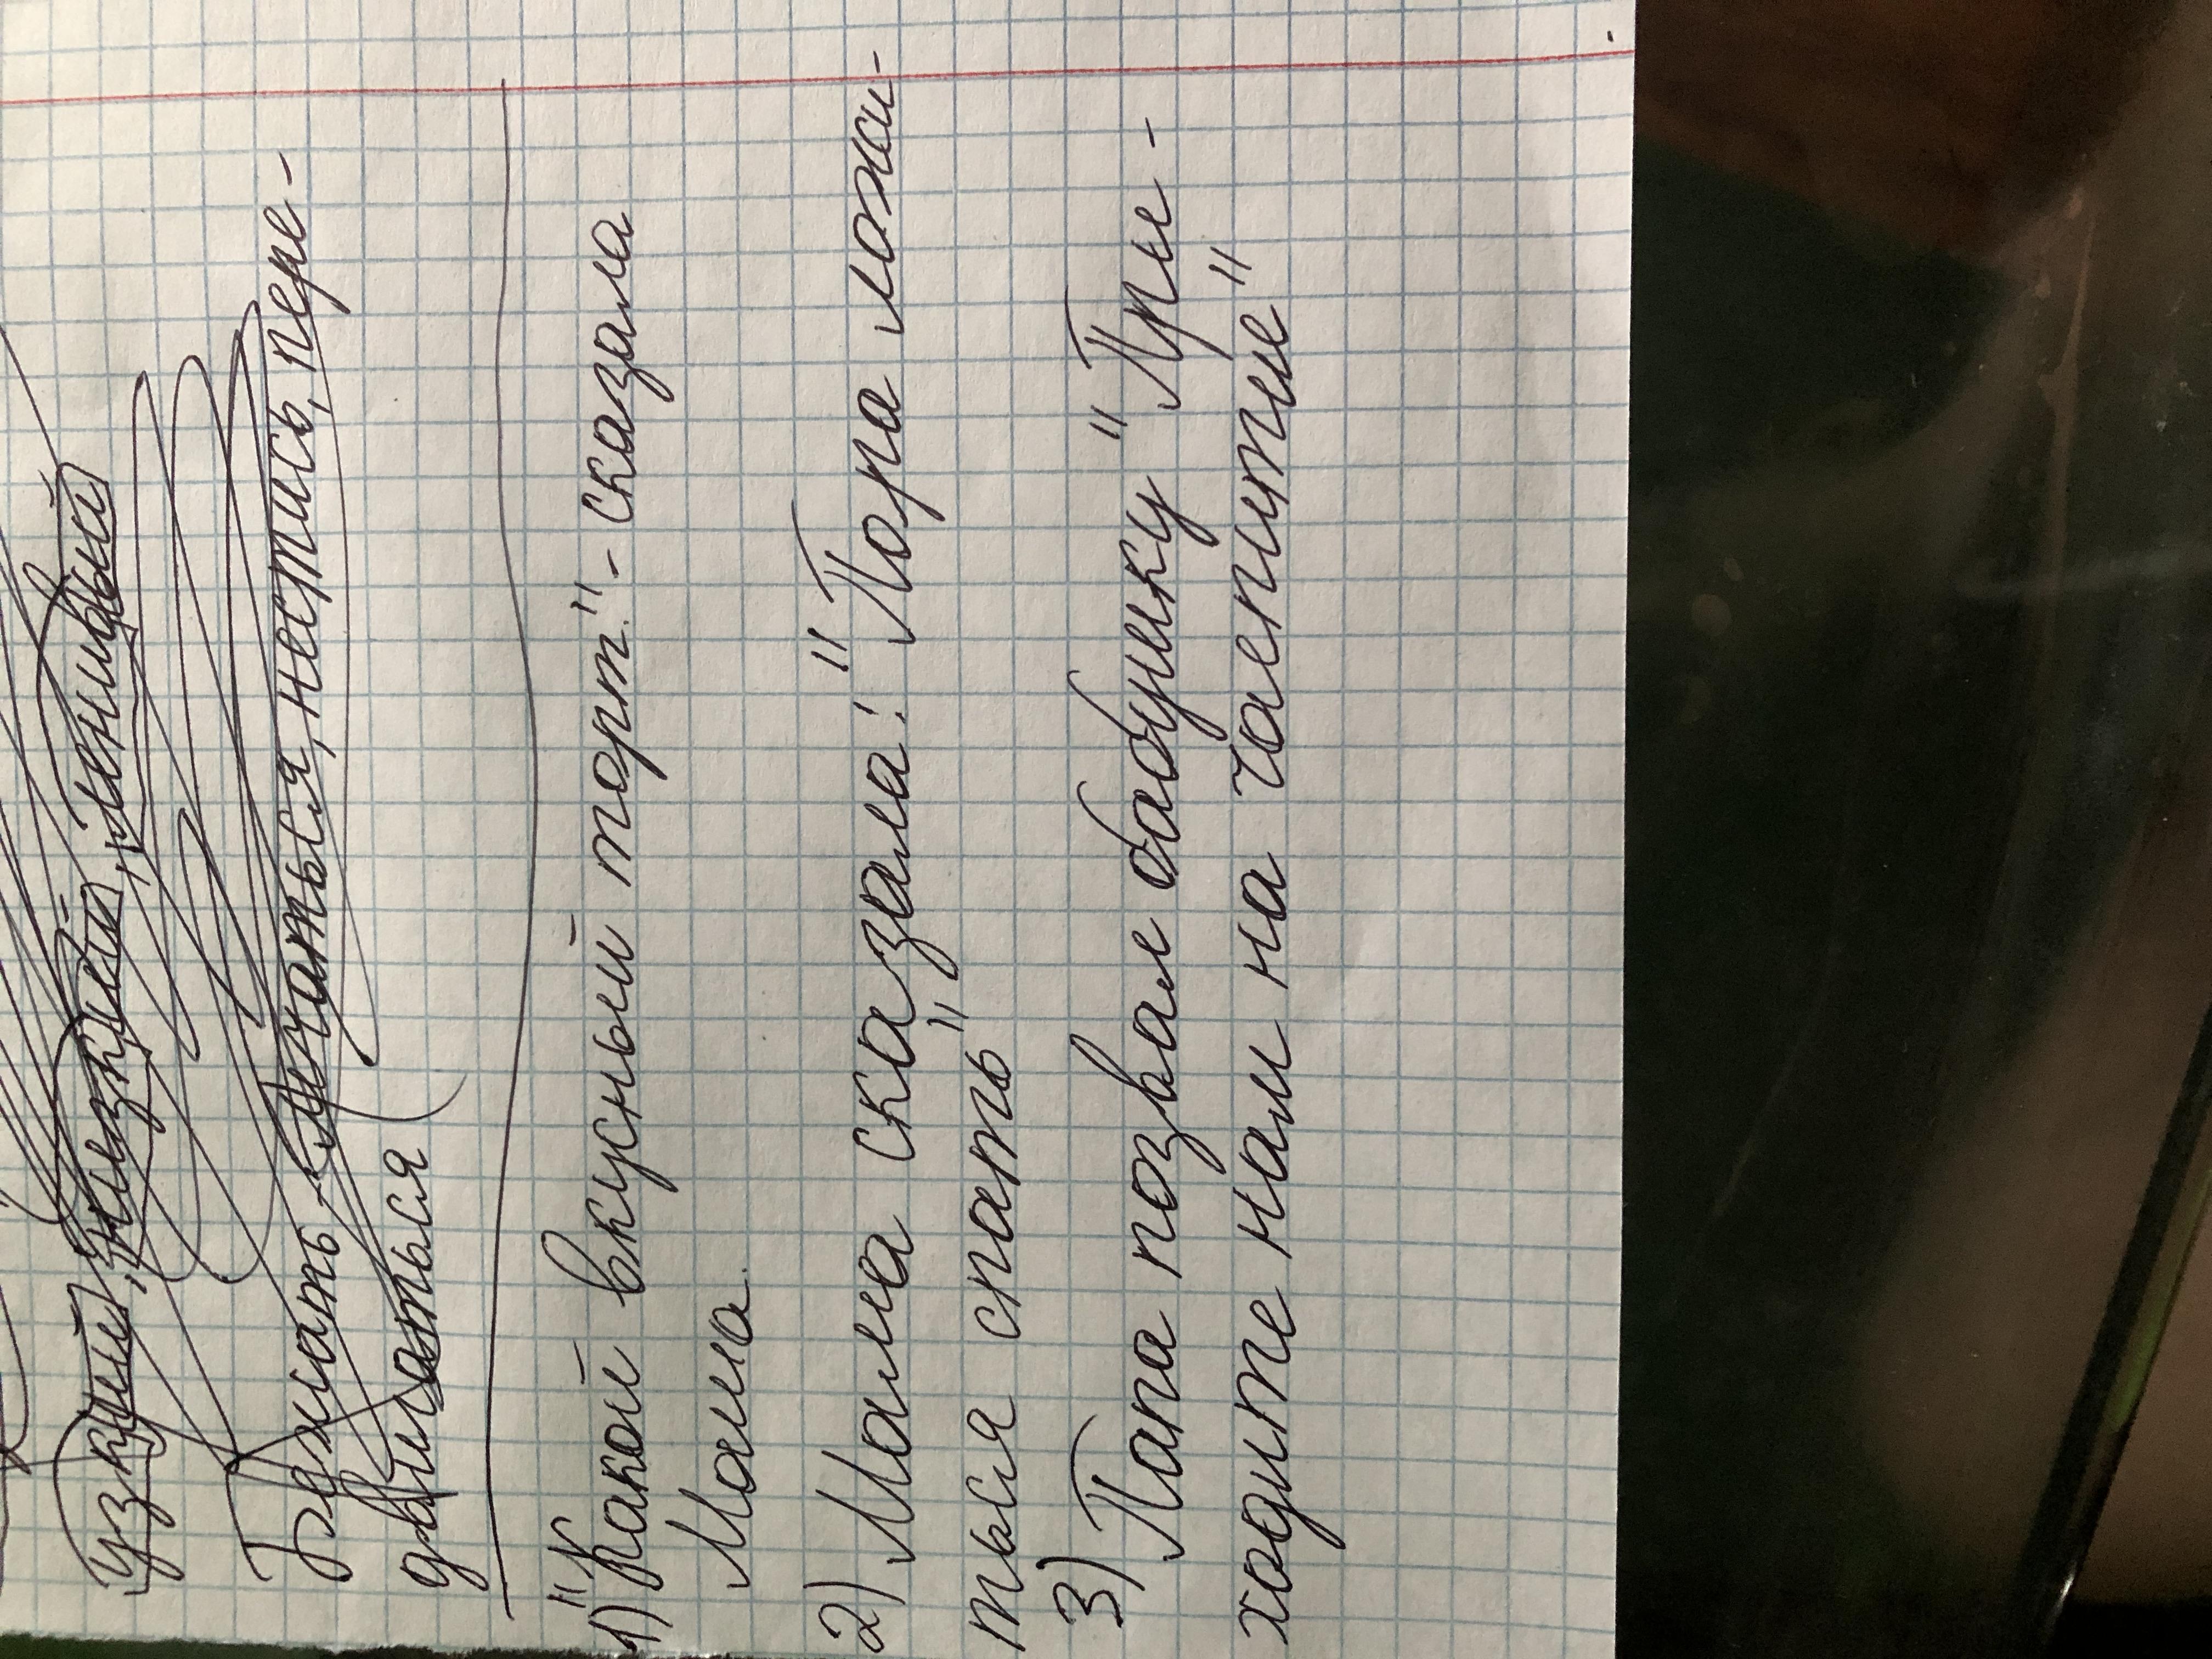 узкий, низкий, ленивый
Бежать - мчаться, нестись, пере-
двигаться
1) "Какой вкусный торт." - сказала
Мама.
2) Мама сказала: "Пора ложи-
ться спать"
3) Папа позвал бабушку "При-
ходите нам на чаепитие"